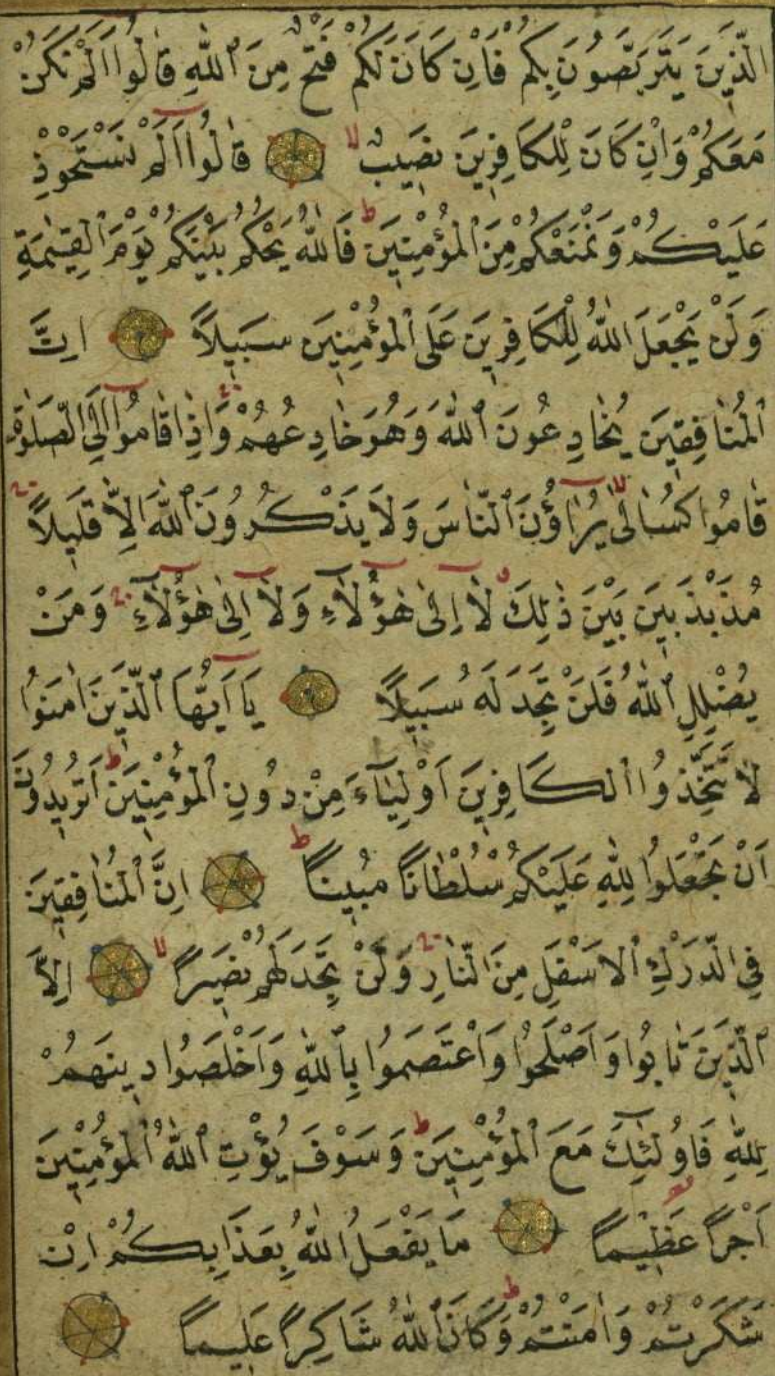 الَّذِينَ يَتَرَبَّصُونَ بِكُمْ فَاِنْ كَانَ لَكُمْ فَتْحٌ مِنَ ٱللّٰهِ قَالُوا اَلَمْ نَكُنْ
مَعَكُمْ وَاِنْ كَانَ لِلْكَافِرِينَ نَصِيبٌ ۙ قَالُوا اَلَمْ نَسْتَحْوِذْ
عَلَيْكُمْ وَنَمْنَعْكُمْ مِنَ ٱلْمُؤْمِنِينَ ۜط فَاللّٰهُ يَحْكُمُ بَيْنَكُمْ يَوْمَ ٱلْقِيٰمَةِ
وَلَنْ يَجْعَلَ ٱللّٰهُ لِلْكَافِرِينَ عَلَى ٱلْمُؤْمِنِينَ سَبِيلًا اِنَّ
ٱلْمُنَافِقِينَ يُخَادِعُونَ ٱللّٰهَ وَهُوَ خَادِعُهُمْ وَاِذَا قَامُوا اِلَى ٱلصَّلٰوةِ
قَامُوا كُسَالٰى ۙ يُرَاؤُنَ ٱلنَّاسَ وَلَا يَذْكُرُونَ ٱللّٰهَ اِلَّا قَلِيلًا
مُذَبْذَبِينَ بَيْنَ ذٰلِكَ لَا اِلٰى هٰؤُلَاءِ وَلَا اِلٰى هٰؤُلَاءِ وَمَنْ
يُضْلِلِ ٱللّٰهُ فَلَنْ تَجِدَ لَهُ سَبِيلًا يَا اَيُّهَا ٱلَّذِينَ اٰمَنُوا
لَا تَتَّخِذُوا ٱلْكَافِرِينَ اَوْلِيَآءَ مِنْ دُونِ ٱلْمُؤْمِنِينَ ط اَتُرِيدُونَ
اَنْ تَجْعَلُوا لِلّٰهِ عَلَيْكُمْ سُلْطَانًا مُبِينًا ط اِنَّ ٱلْمُنَافِقِينَ
فِي ٱلدَّرْكِ ٱلْاَسْفَلِ مِنَ ٱلنَّارِ وَلَنْ تَجِدَ لَهُمْ نَصِيرًا ۙ اِلَّا
ٱلَّذِينَ تَابُوا وَاَصْلَحُوا وَاعْتَصَمُوا بِٱللّٰهِ وَاَخْلَصُوا دِينَهُمْ
لِلّٰهِ فَاُولٰئِكَ مَعَ ٱلْمُؤْمِنِينَ ط وَسَوْفَ يُؤْتِ ٱللّٰهُ ٱلْمُؤْمِنِينَ
اَجْرًا عَظِيمًا مَا يَفْعَلُ ٱللّٰهُ بِعَذَابِكُمْ اِنْ
شَكَرْتُمْ وَاٰمَنْتُمْ ط وَكَانَ ٱللّٰهُ شَاكِرًا عَلِيمًا